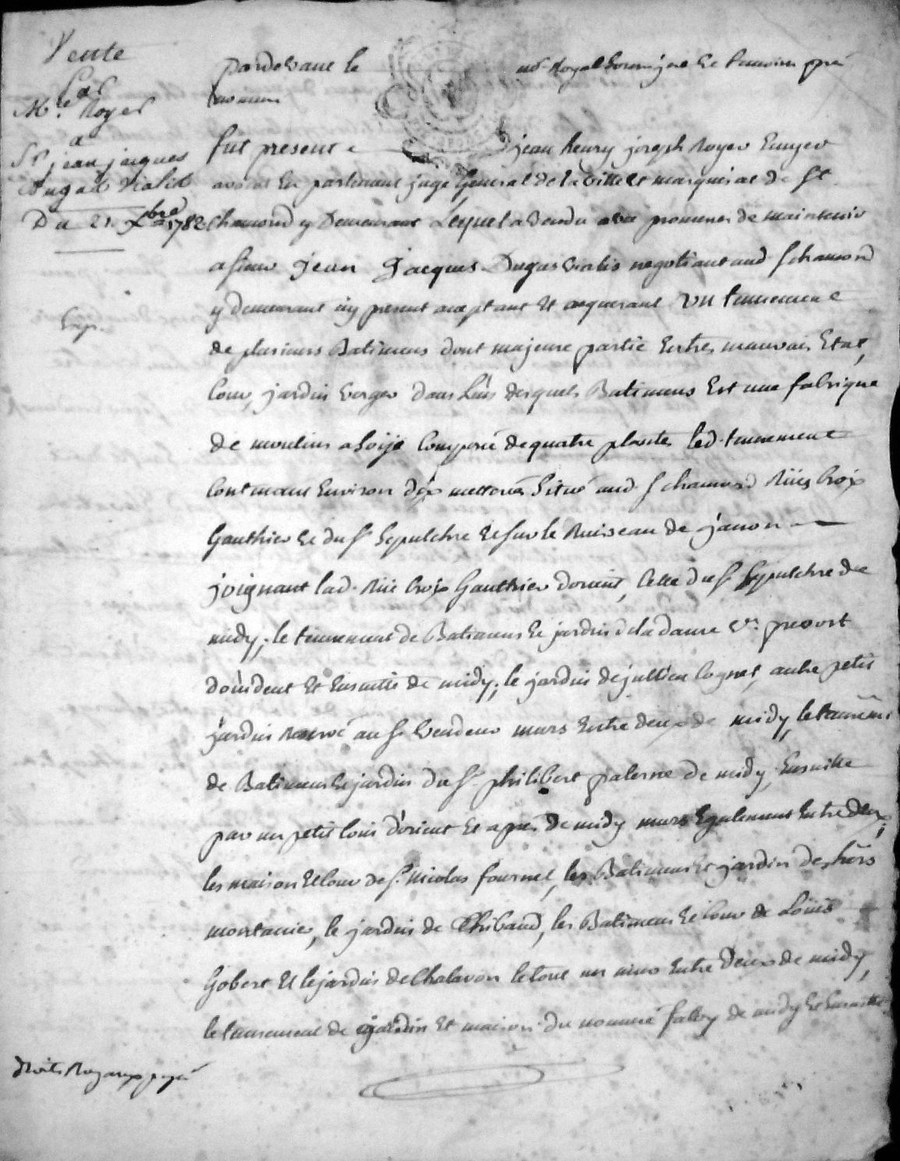 Vente
Par
Me. Royer
a
Sr. jean jacques
Dugas Vialis
Du 21. Xbre 1782
Exp.
pardevant le nore. Royal soussigné et temoins
fut present jean henry joseph Royer Ecuyer
avocat en parlement juge general de la ville et marquisat de St.
chamond y demeurant Lequel a vendu avec promesse de maintenir
a sieur jean jacques Dugas vialis negotiant aud. St chamond
y demeurant icy present aceptant et aquerant un tennement
de plusieurs Batimens dont majeure partie en tres mauvais Etat,
cour, jardin verger dans l'un desquels Batimens est une fabrique
de moulins a soije composée de quatre led. tennement
contenant environ dix metterées situé aud. St chamond Rües croix
Gauthier et du St Sepulchre et sur le Ruisseau de janon
joignant lad. Rüe croix Gauthier d'orient, celle du St Sepulchre de
midy, le tennement de Batimens et jardin de la dame ve. prevost
d'occident et ensuitte de midy, le jardin de jullien Cognet, autre petit
jardin au Sr. vendeur murs entre deux de midy, le tennemt
de Batimens et jardin du Sr. philibert palerne de midy, ensuitte
par un petit coin d'orient et apres de midy murs egalement entre deux,
les maison et cour de Sr. Nicolas fournel, les Batimens et jardin des hers
montanier, le jardin de Thibaud, les Batimens et cour de Loüis
Gobert et le jardin de Chalavon le tout un mur entre deux de midy,
le tennement de jardin et maison du nommé fabry de midy et ensuitte
droits Royaux payés